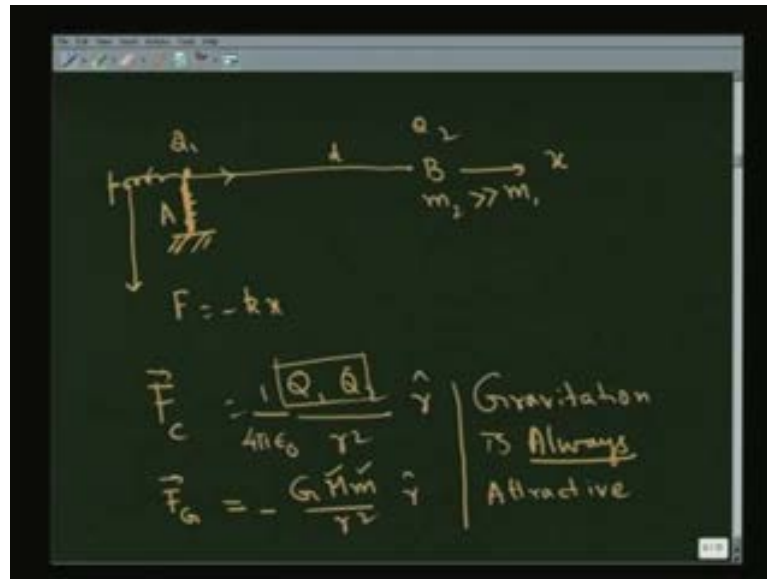 Q₁ d Q₂
A B → x
m₂ >> m₁
F = -kx
F⃗_C = 1/4πε₀ Q₁ Q₂/r² r̂
F⃗_G = - G M m/r² r̂
Gravitation
is Always
Attractive